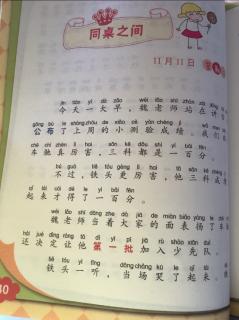 同桌之间
11月11日
jīn tiān yí dà zǎo wèi lǎo shī zhàn zài jiǎng
今天一大早，魏老师站在讲
gōng bù le shàng zhōu de xiǎo cè yàn chéng jì
公布了上周的小测验成绩。我们
chē chí zhēn lì hai sān kē dōu shì yì bǎi fēn
车驰真厉害，三科都是一百分。
bú guò tiě tóu gèng lì hai tā sān kē chéng
不过，铁头更厉害，他三科成
qǐ lái cái dé le yì bǎi fēn
起来才得了一百分。
wèi lǎo shī dāng zhe dà jiā de miàn biǎo yáng le chē
魏老师当着大家的面表扬了车
hái jué dìng ràng tā dì yī pī jiā rù shào xiān duì
还决定让他第一批加入少先队。
tiě tóu yì tīng dāng chǎng kū le qǐ lái
铁头一听，当场哭了起来。
40